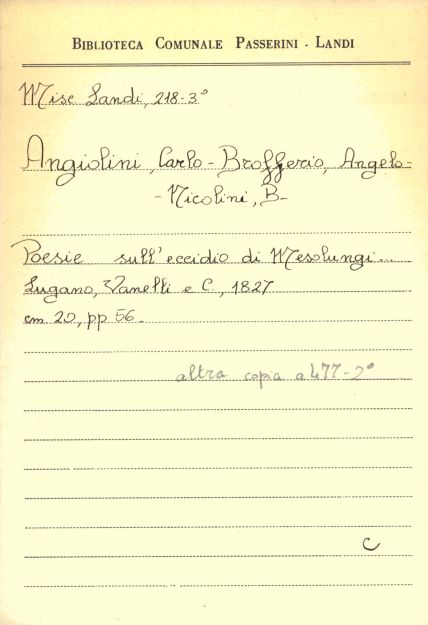 BIBLIOTECA COMUNALE PASSERINI - LANDI
Misc Landi, 218-3°
Angiolini, Carlo - Brofferio, Angelo-
- Nicolini, B-
Poesie sull'eccidio di Mesolungi...
Lugano, Vanelli e C., 1827
cm 20, pp 56-
altra copia a 477-2°
C